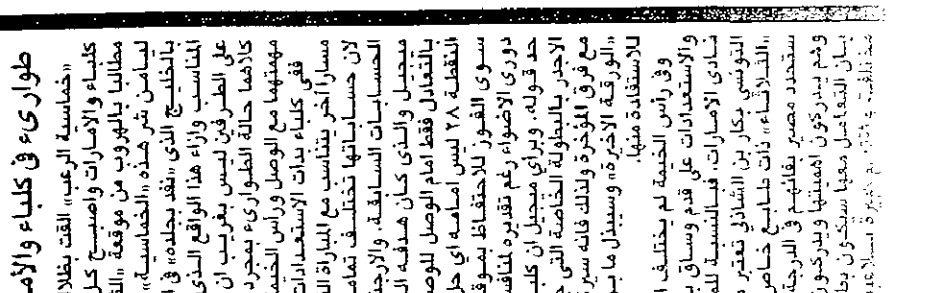 طوارىء في كلباء والأم
«خماسية الرعب» القت بظلا
كلباء والامارات واصبح كل
مطالبا بالهروب من موقعة
ليامن شر هذه «الخماسية»
بالخليج الذي «نفد بجلده» في
المناسب وازاء هذا الواقع الذي
على الطرفين ليس بغريب ان
كلاهما حالة الطوارىء بمجرد
مهمتهما مع الوصل ورأس الخيم
ففي كلباء بدات الاستعدادات
مسارا آخر يتناسب مع المباراة
لان حساباتها تختلف تمام
الحسابات السابقة. والارجح
مجيل والذي كان هدفه
بالتعادل فقط امام الوصل للوص
النقطة ٢٨ ليس امامه اي حل
سوى الفوز للاحتفاظ بموق
دوري الاضواء رغم تقديره للمنافس
حد قوله. وبراي مجيل ان كلب
الاجدر بالبطولة الخاصة التي
مع فرق المؤخرة ولذلك فانه سير
«الورقة الاخيرة» وسيبذل ما
للاستفادة منها.
وفي رأس الخيمة لم يختلف
والاستعدادات على قدم وساق
نادي الامارات، فبالنسبة للم
التونسي بكار بن الشاذلي تعتبر
ذات طابع خاص
ستحدد مصير بقائهم في الدرجة
يدركون اهميتها ويدركون
بان التعامل معها سيكون